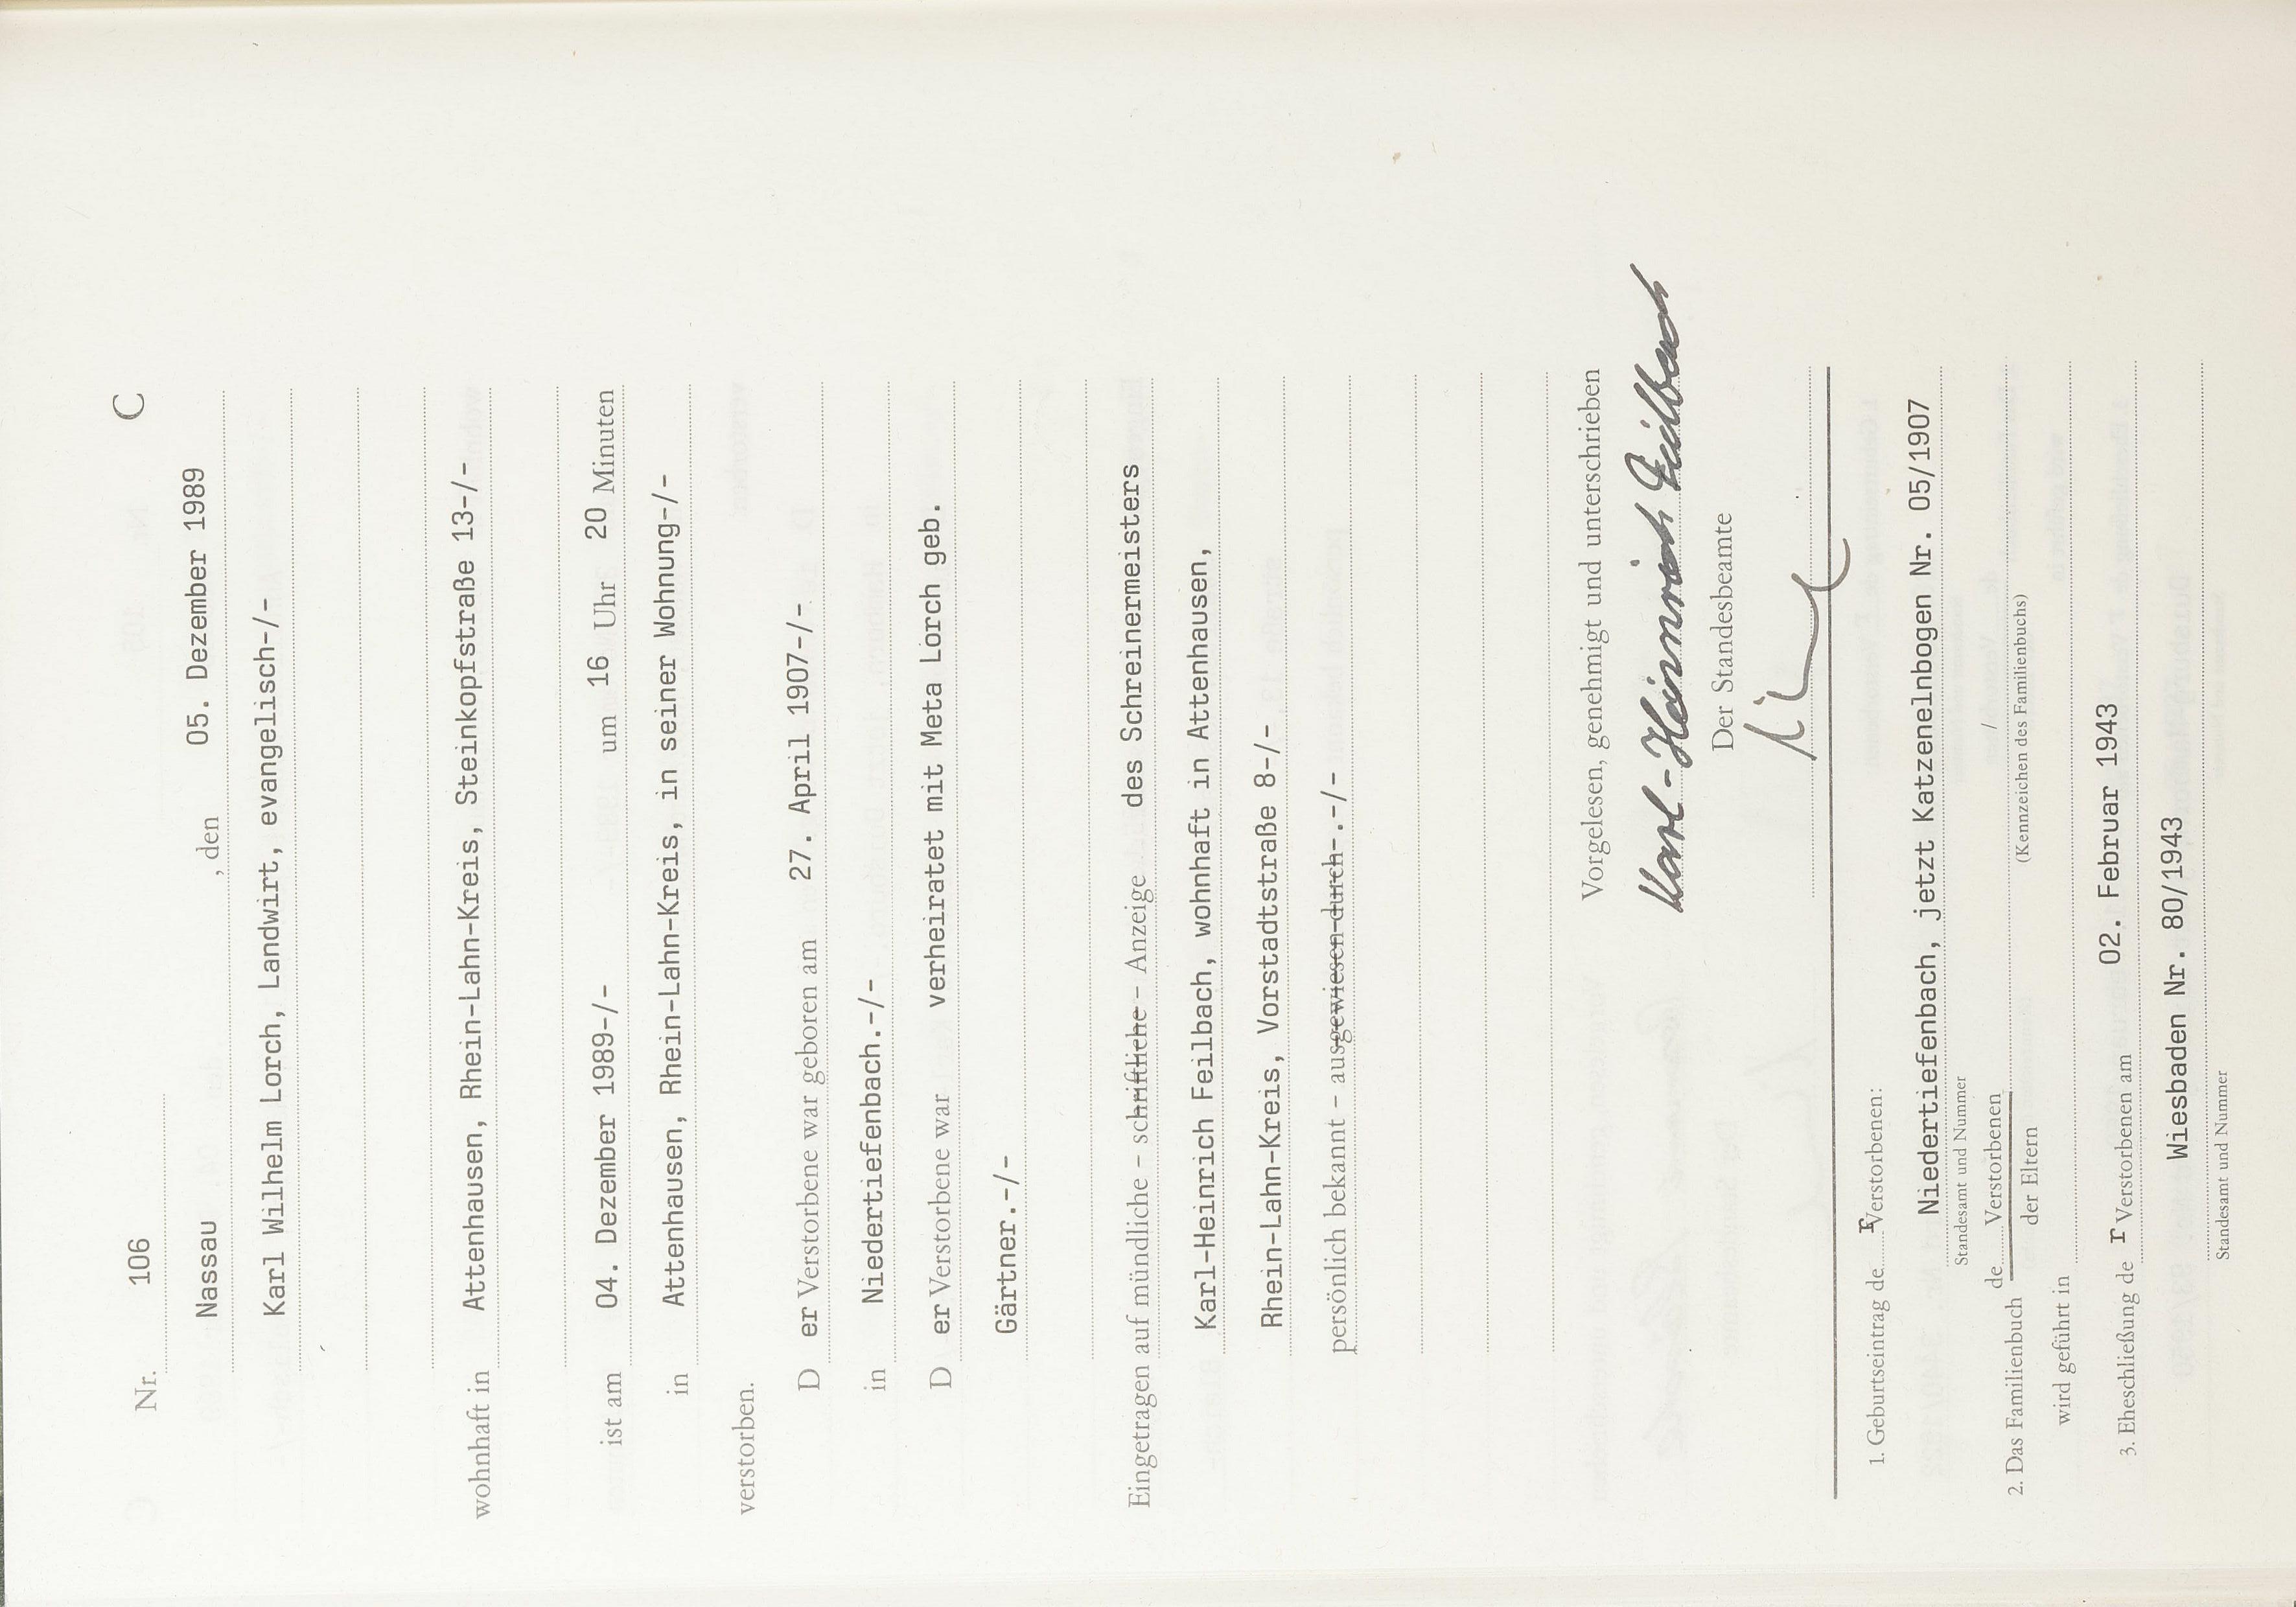 Nr. 106 C
Nassau , den 05. Dezember 1989
Karl Wilhelm Lorch, Landwirt, evangelisch-/-
wohnhaft in Attenhausen, Rhein-Lahn-Kreis, Steinkopfstraße 13-/-
ist am 04. Dezember 1989-/- um 16 Uhr 20 Minuten
in Attenhausen, Rhein-Lahn-Kreis, in seiner Wohnung-/-
verstorben.
D er Verstorbene war geboren am 27. April 1907-/-
in Niedertiefenbach.-/-
D er Verstorbene war verheiratet mit Meta Lorch geb.
Gärtner.-/-
Eingetragen auf mündliche – schriftliche – Anzeige des Schreinermeisters
Karl-Heinrich Feilbach, wohnhaft in Attenhausen,
Rhein-Lahn-Kreis, Vorstadtstraße 8-/-
persönlich bekannt – ausgewiesen durch-.-/-
Vorgelesen, genehmigt und unterschrieben
Karl-Heinrich Feilbach
Der Standesbeamte
1. Geburtseintrag de r Verstorbenen:
Niedertiefenbach, jetzt Katzenelnbogen Nr. 05/1907
Standesamt und Nummer
2. Das Familienbuch de Verstorbenen /
der Eltern (Kennzeichen des Familienbuchs)
wird geführt in
3. Eheschließung de r Verstorbenen am 02. Februar 1943
Wiesbaden Nr. 80/1943
Standesamt und Nummer